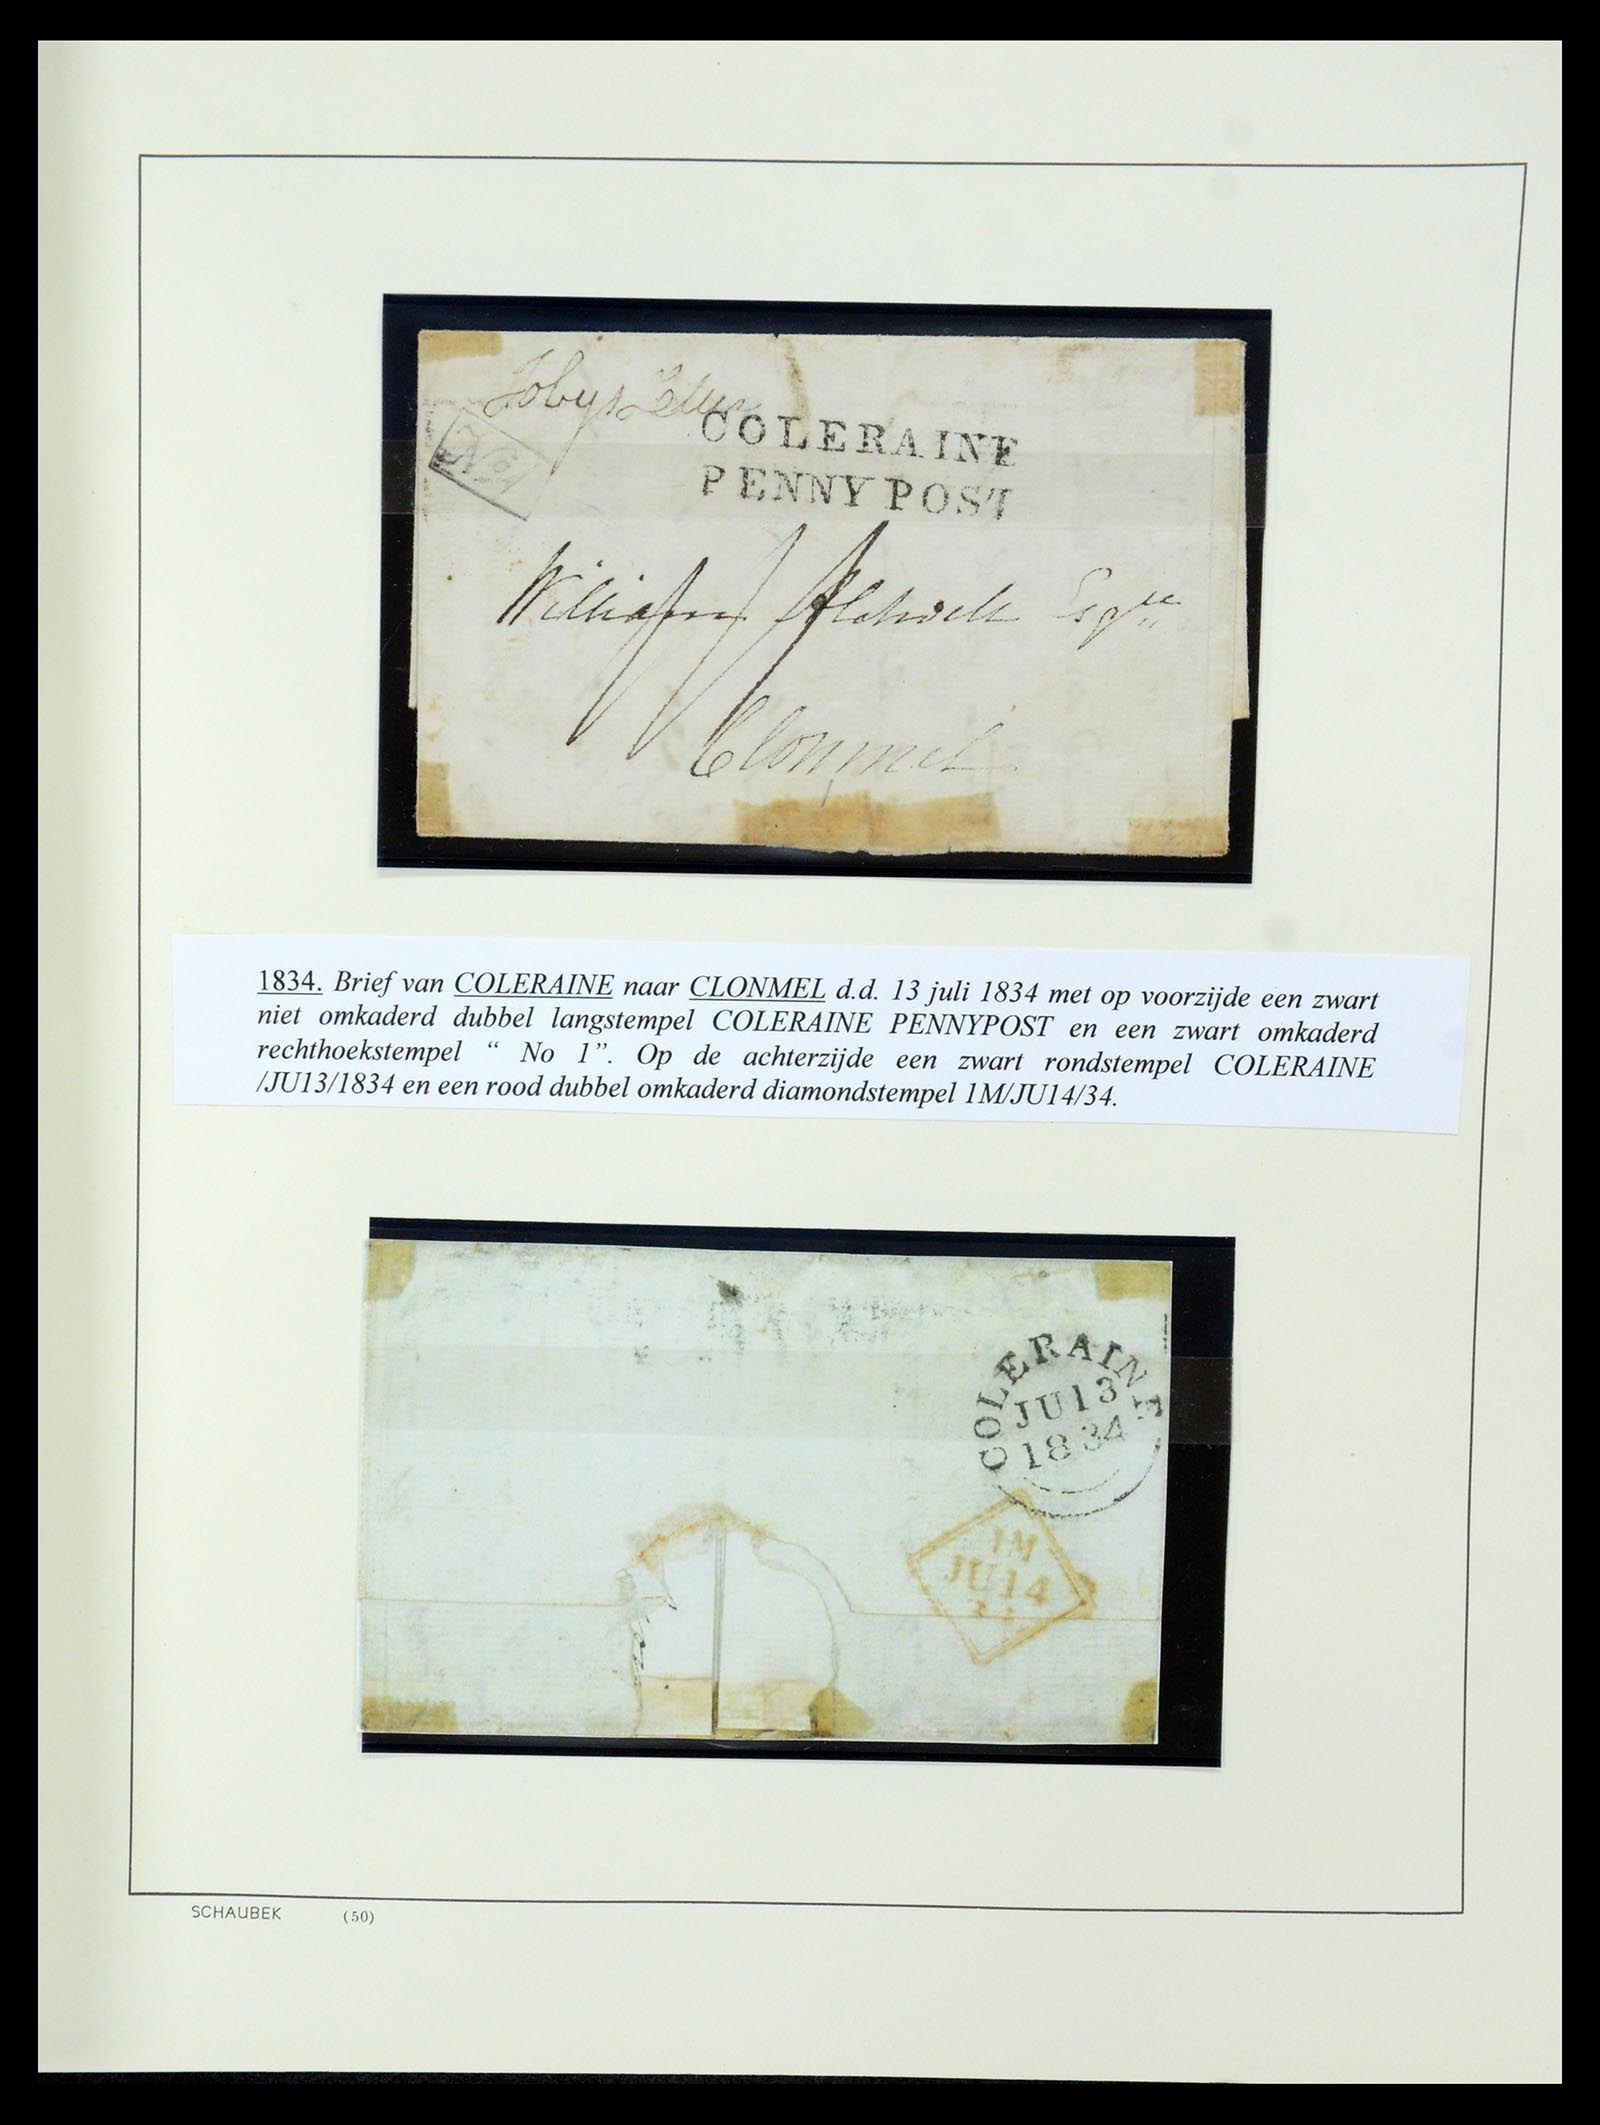 COLERAINE
PENNY POST
No 1
William
Esqre
Clonmel
1834. Brief van COLERAINE naar CLONMEL d.d. 13 juli 1834 met op voorzijde een zwart
niet omkaderd dubbel langstempel COLERAINE PENNYPOST en een zwart omkaderd
rechthoekstempel “ No 1”. Op de achterzijde een zwart rondstempel COLERAINE
/JU13/1834 en een rood dubbel omkaderd diamondstempel 1M/JU14/34.
COLERAINE
JU13
1834
1M
JU14
34
SCHAUBEK (50)